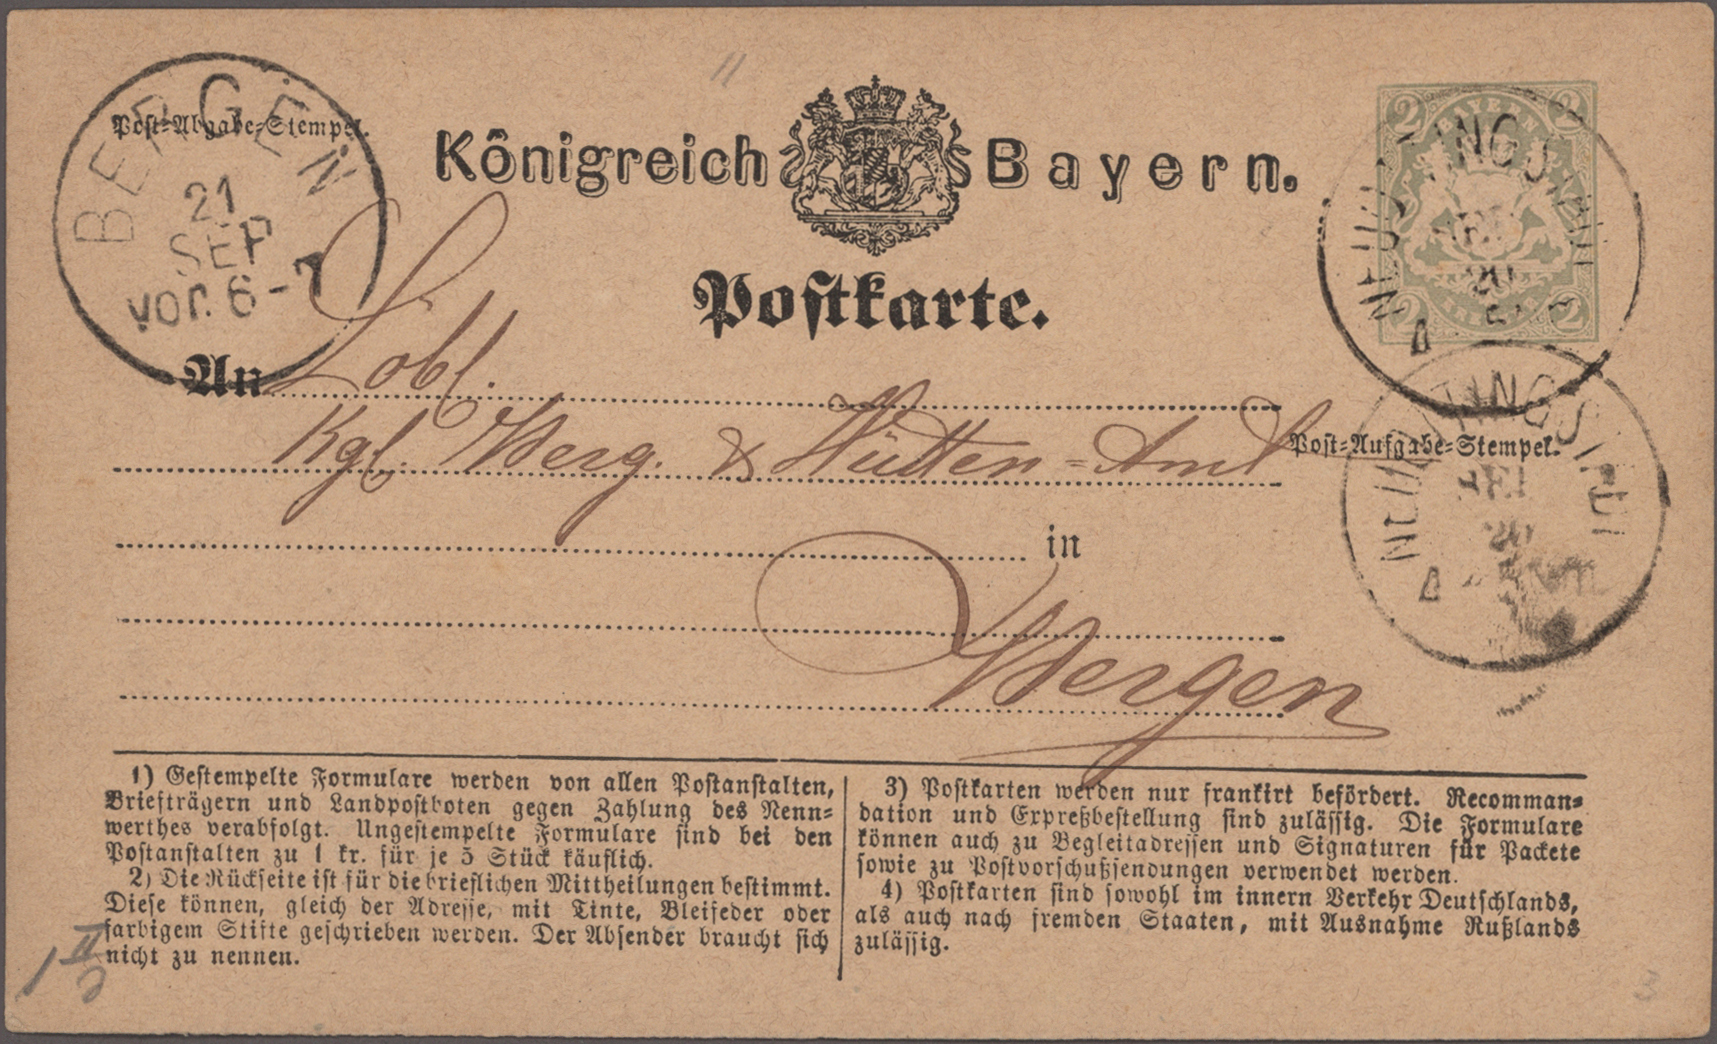 Post-Abgabe-Stempel.
BERGEN
21
SEP
vor. 6-7
Königreich Bayern.
2 BAYERN 2
KREUZER
2 2
20
Postkarte.
An Löbl.
Kgl. Berg. & Hütten-Amt
Post-Aufgabe-Stempel.
in
Bergen
1) Gestempelte Formulare werden von allen Postanstalten,
Briefträgern und Landpostboten gegen Zahlung des Nenn-
werthes verabfolgt. Ungestempelte Formulare sind bei den
Postanstalten zu 1 kr. für je 5 Stück käuflich.
2) Die Rückseite ist für die brieflichen Mittheilungen bestimmt.
Diese können, gleich der Adresse, mit Tinte, Bleifeder oder
farbigem Stifte geschrieben werden. Der Absender braucht sich
nicht zu nennen.
3) Postkarten werden nur frankirt befördert. Recomman-
dation und Expreßbestellung sind zulässig. Die Formulare
können auch zu Begleitadressen und Signaturen für Packete
sowie zu Postvorschußsendungen verwendet werden.
4) Postkarten sind sowohl im innern Verkehr Deutschlands,
als auch nach fremden Staaten, mit Ausnahme Rußlands
zulässig.
3